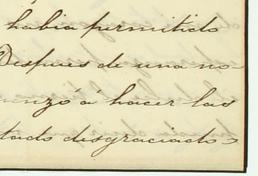 habia permitido
Despues de una no
menzó á hacer las
tado desgraciado